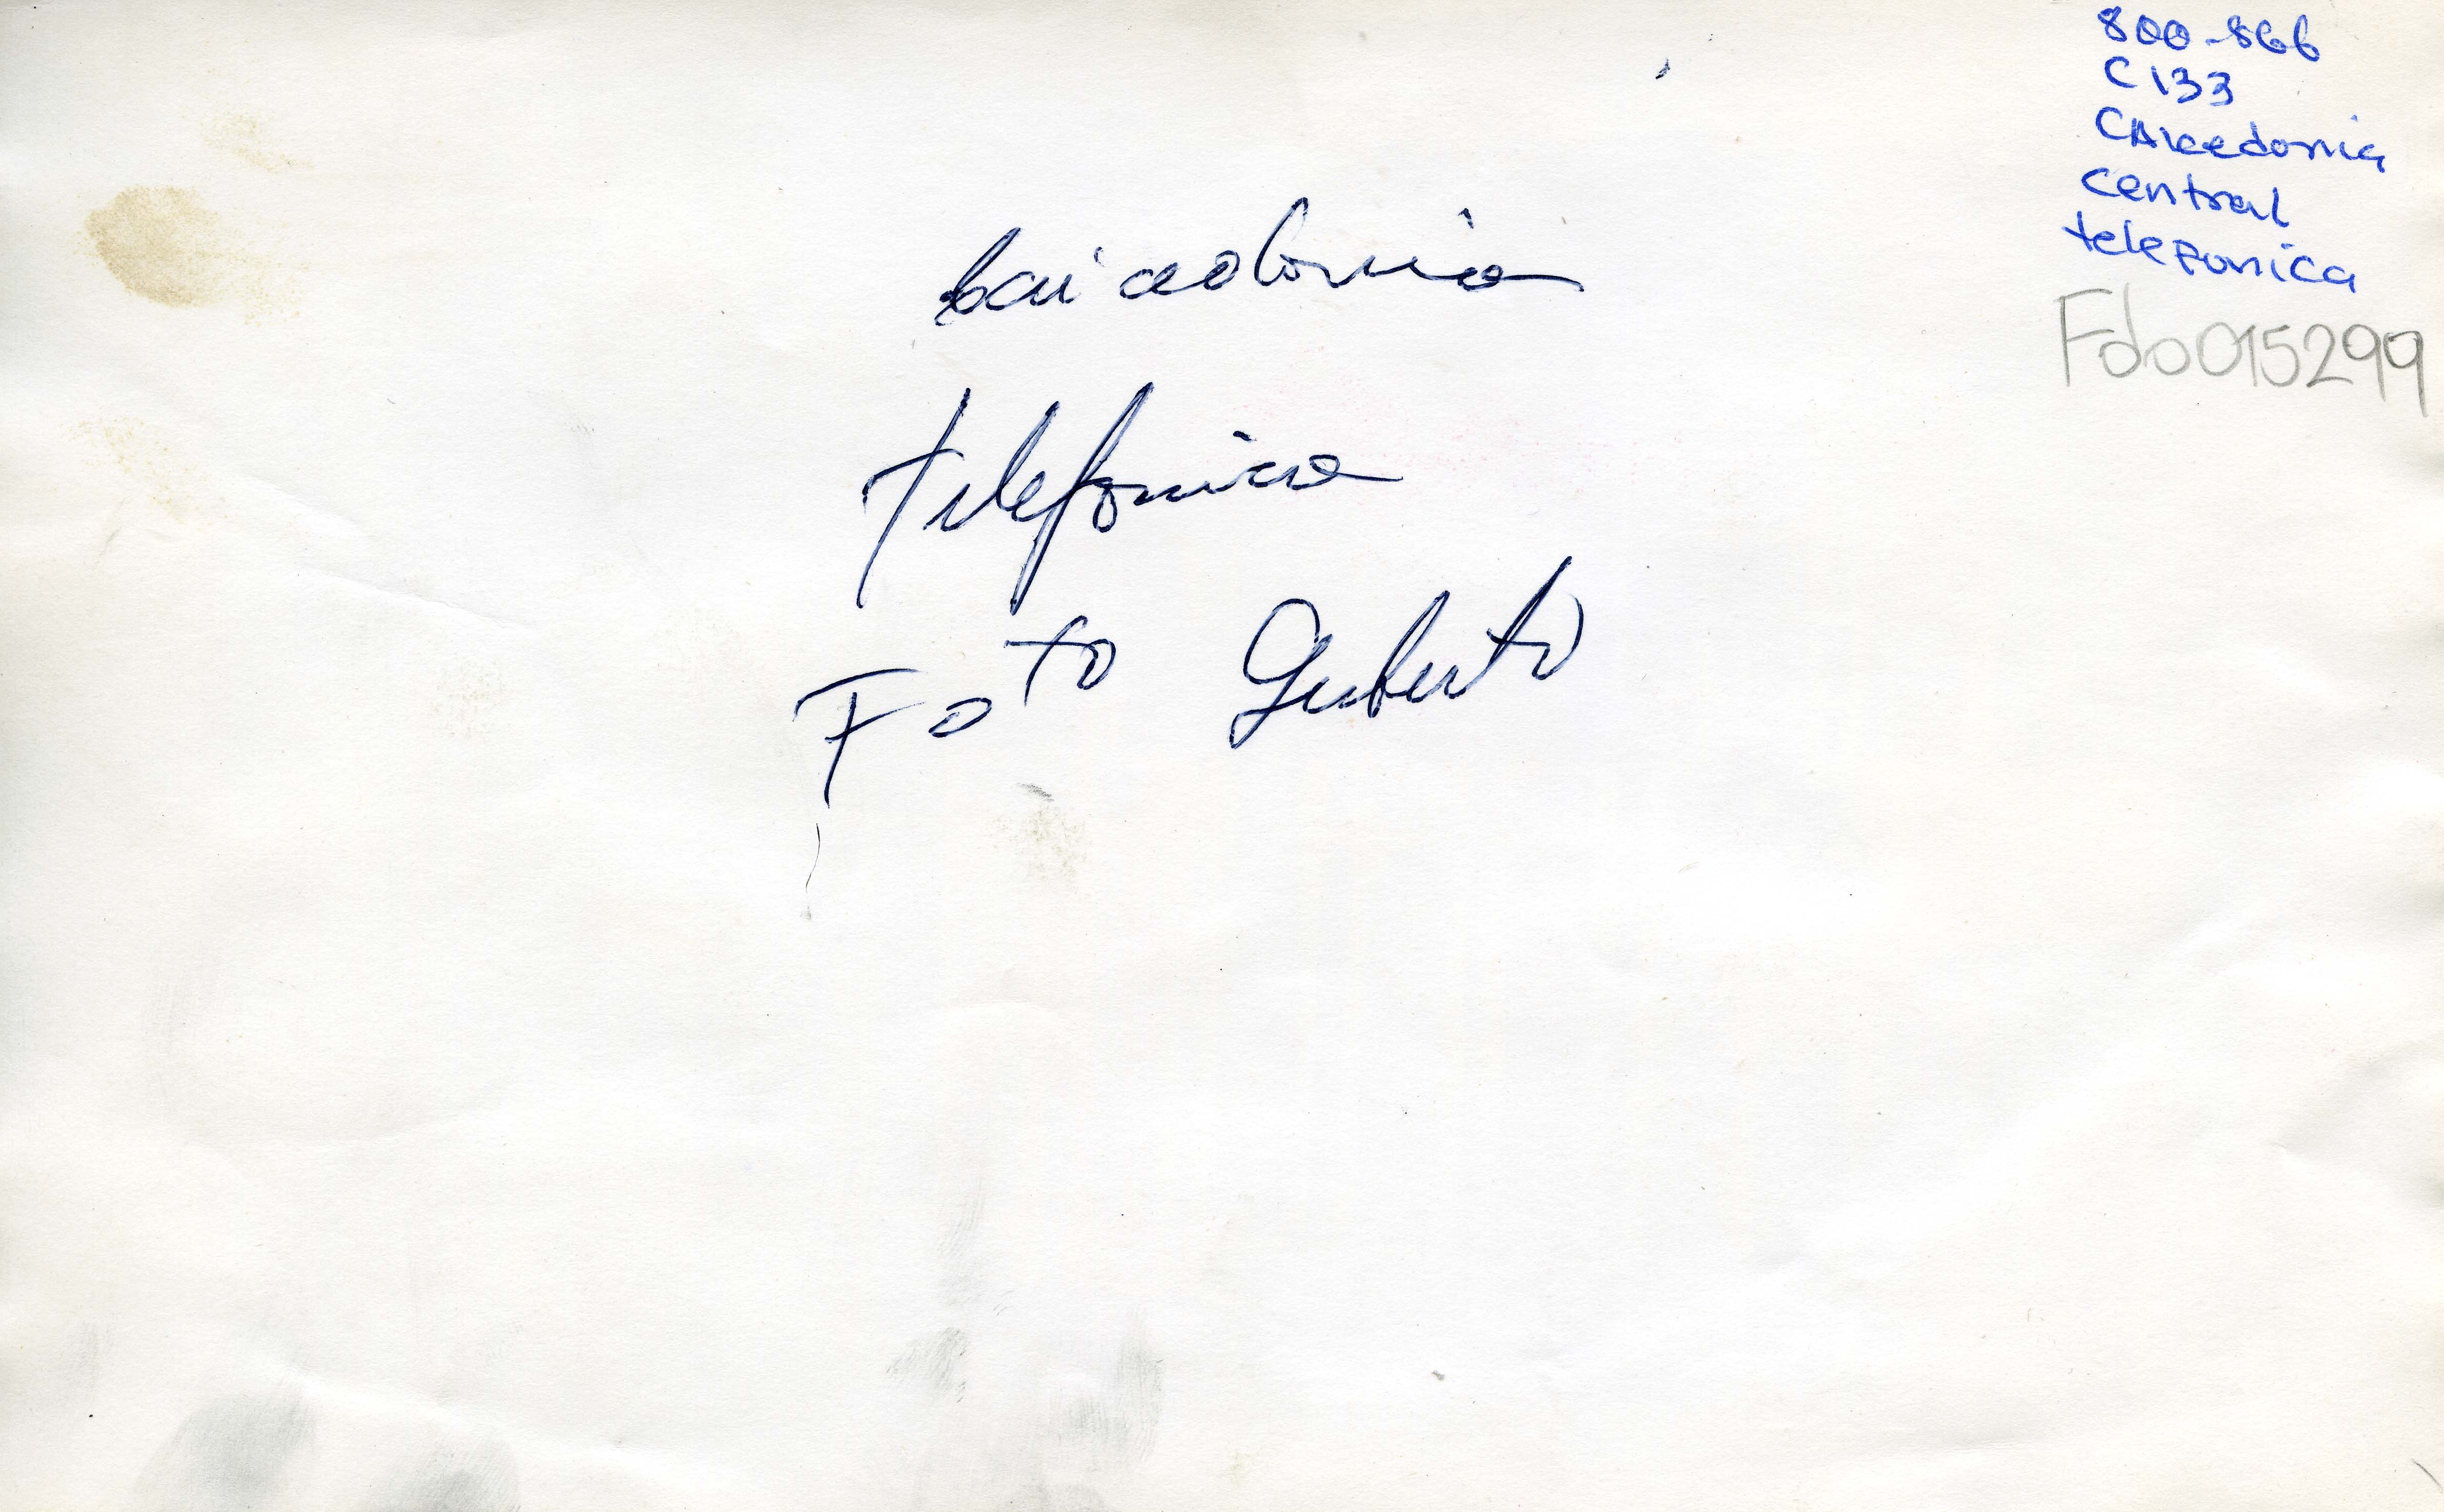 800-866
C133
CAicedonia
central
telefonica
Fdo015299
Caicedonia
telefonica
Foto Gilberto